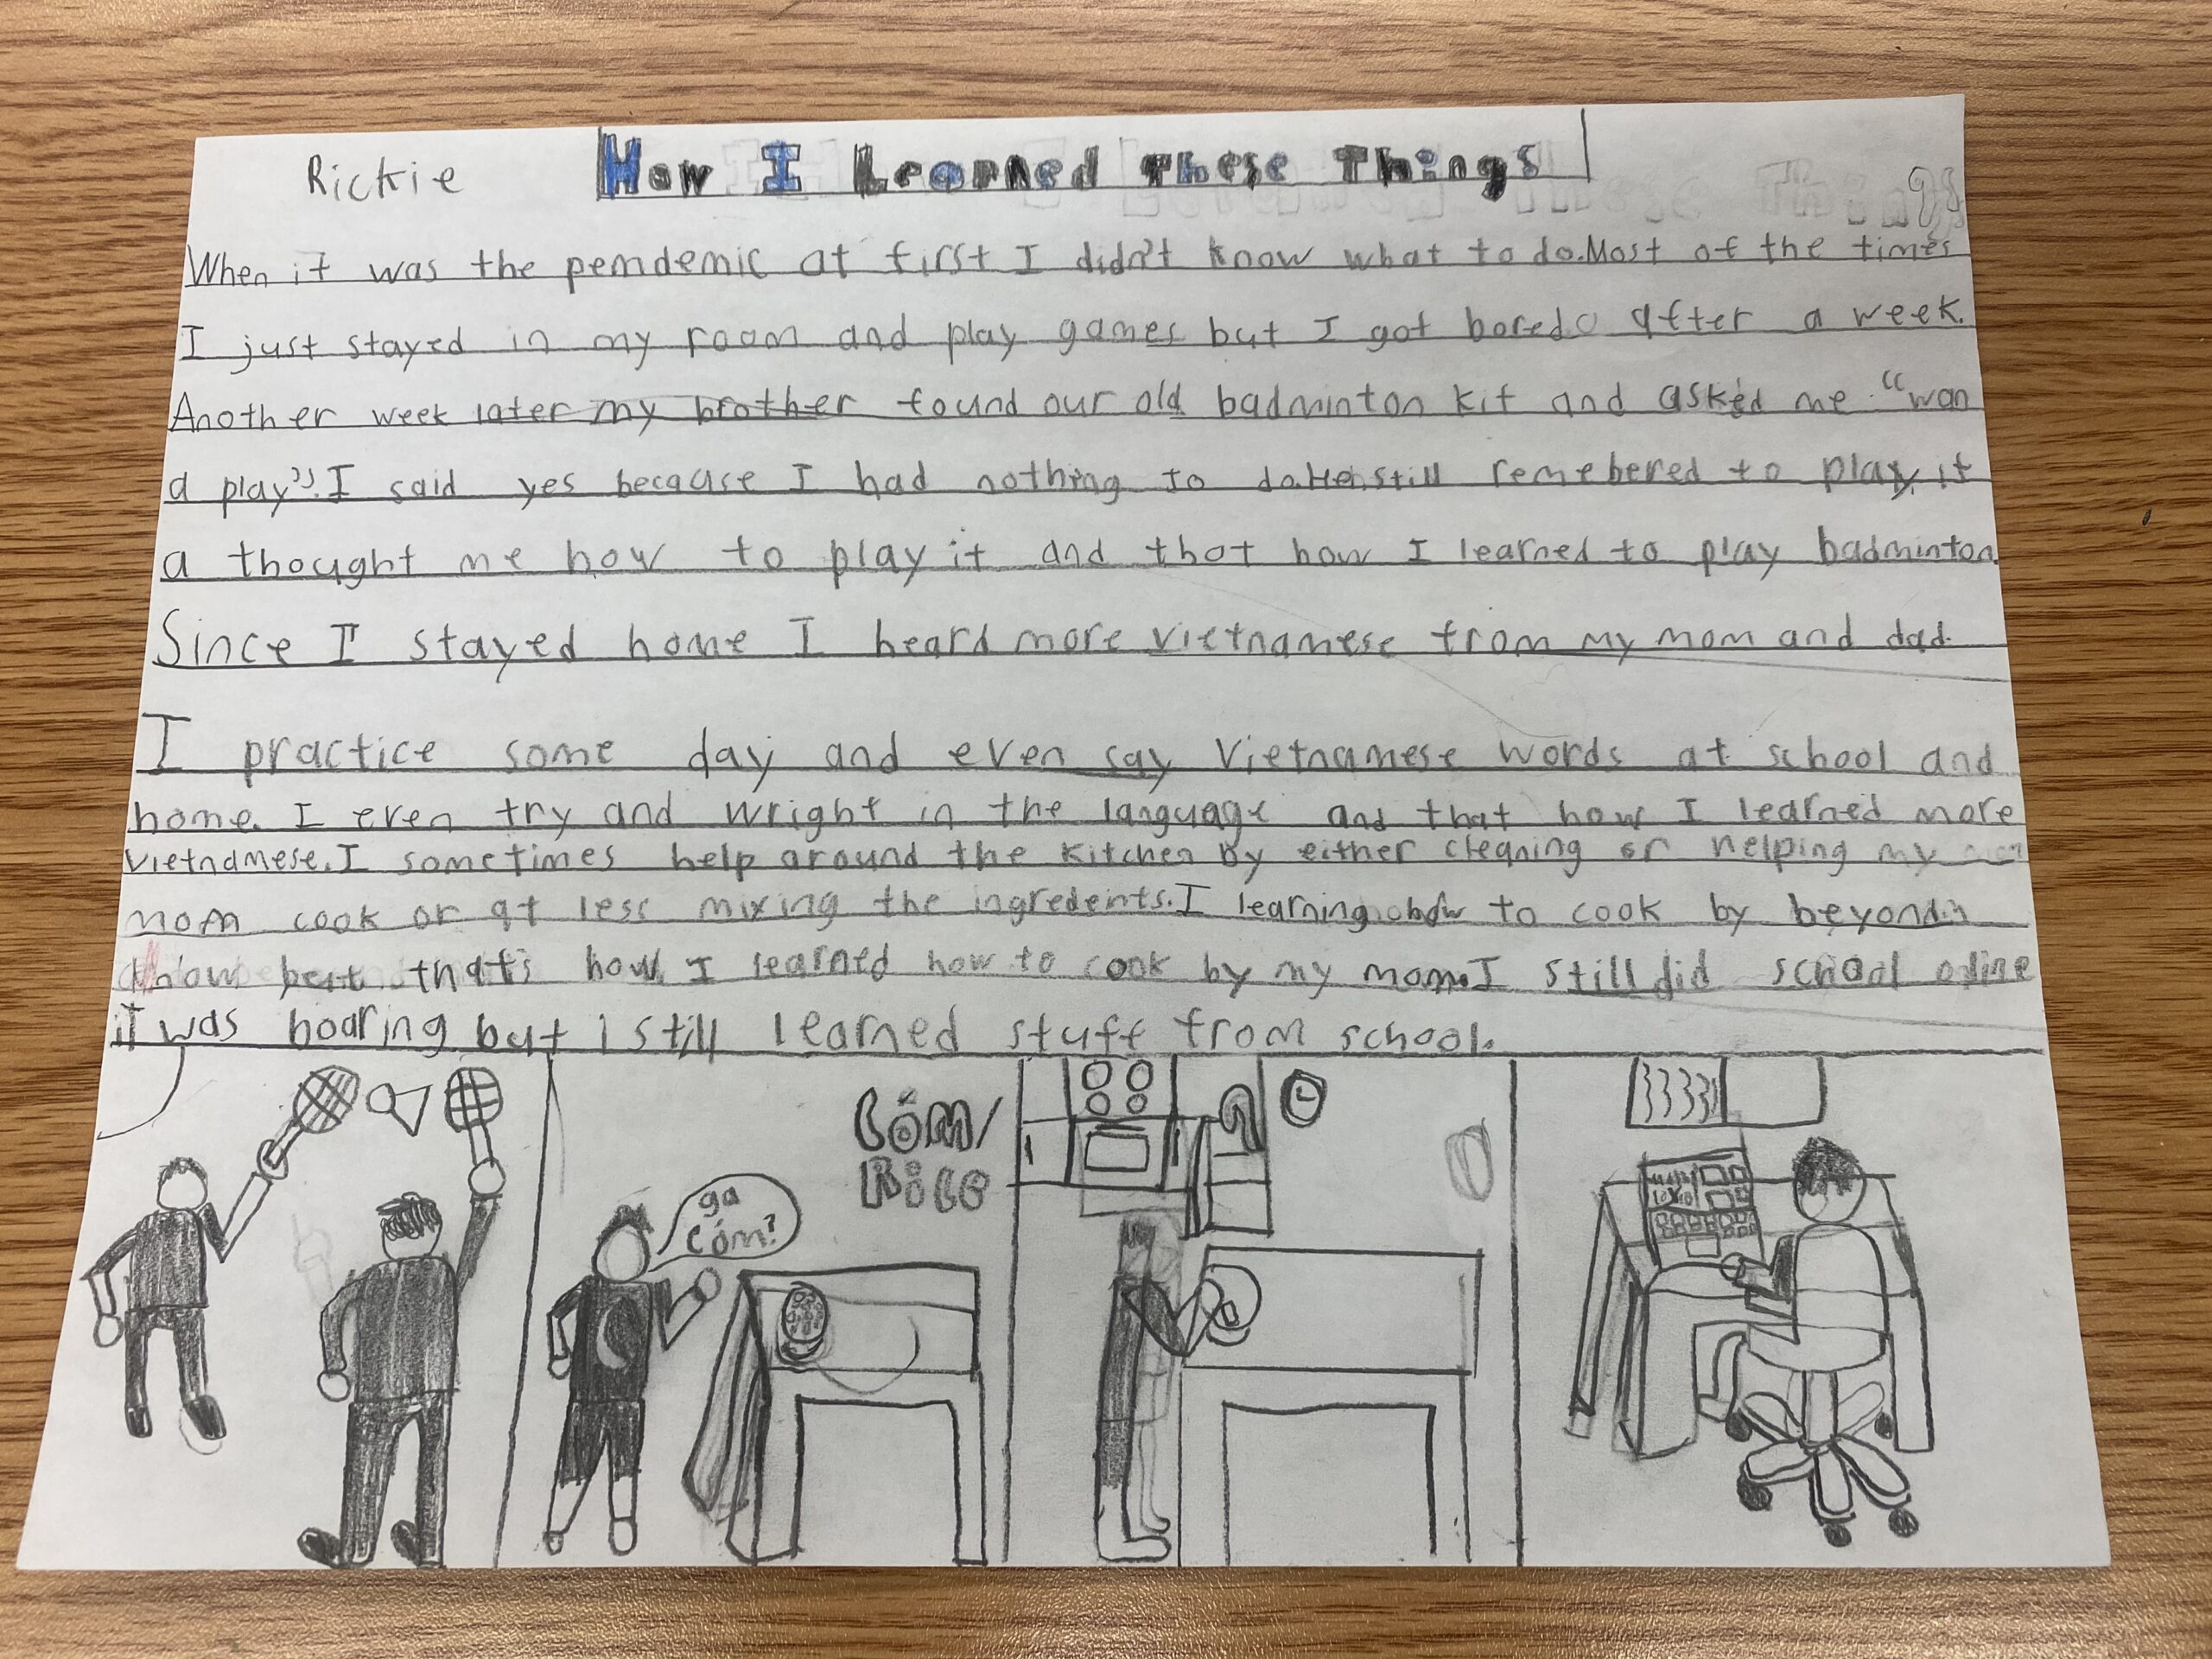 Rickie How I Learned These Things
When it was the pemdemic at first I didn't know what to do. Most of the times
I just stayed in my room and play games but I got bored after a week.
Another week later my brother found our old badminton kit and asked me "wan
a play". I said yes because I had nothing to do. He still remebered to play it
a thought me how to play it and that how I learned to play badminton.
Since I stayed home I heard more vietnamese from my mom and dad.
I practice some day and even say Vietnamese words at school and
home. I even try and wright in the language and that how I learned more
vietnamese. I sometimes help around the kitchen by either cleaning or helping my
mom cook or at less mixing the ingredeints. I learning how to cook by beyond
that's how I learned how to cook by my mom. I still did school oline
it was boaring but I still learned stuff from school.
Cóm/
Rice
ga
Cóm?